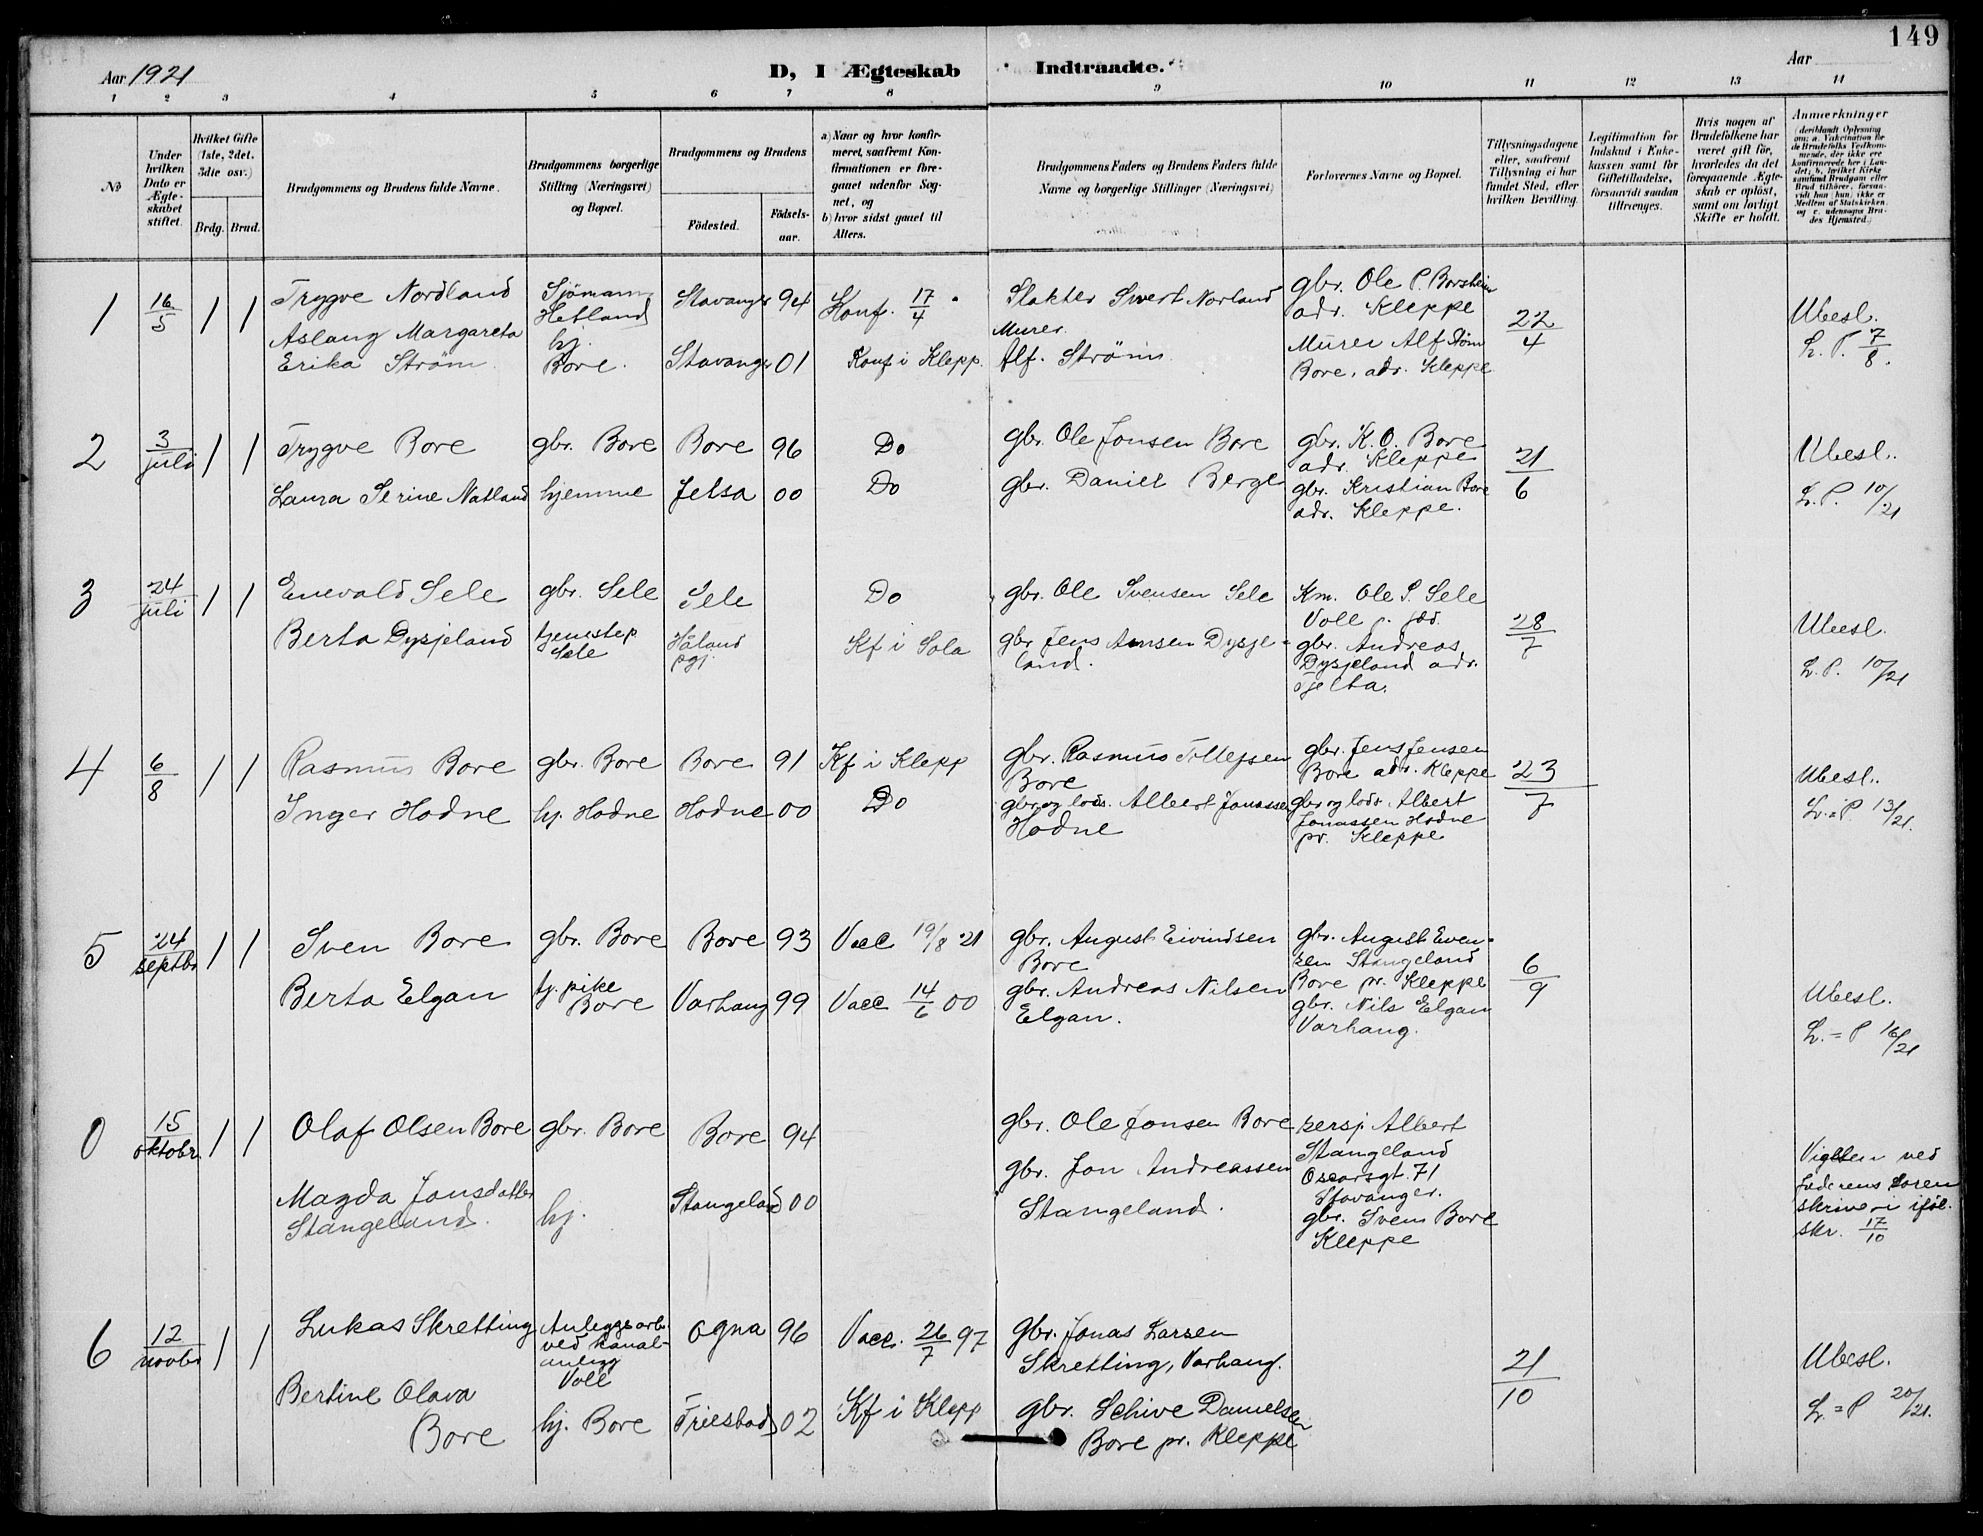 149
Aar 1921
D, I Ægteskab Indtraadte.
Aar
1 2 3 4 5 6 7 8 9 10 11 12 13 14
No
Under hvilken Dato er Ægteskabet stiftet.
Hvilket Gifte (1ste, 2det, 3die osv.)
Brdg. Brud.
Brudgommens og Brudens fulde Navne.
Brudgommens borgerlige Stilling (Næringsvei) og Bopæl.
Brudgommens og Brudens
Födested.
Födselsaar.
a) Naar og hvor konfirmeret, saafremt Konfirmationen er foregaaet udenfor Sognet, og
b) hvor sidst gaaet til Alters.
Brudgommens Faders og Brudens Faders fulde Navne og borgerlige Stillinger (Næringsvei)
Forlovernes Navne og Bopæl.
Tillysningsdagene eller, saafremt Tillysning ei har fundet Sted, efter hvilken Bevilling.
Legitimation for Indskud i Enkekassen samt for Giftetilladelse, forsaavidt saadan tiltrænges.
Hvis nogen af Brudefolkene har været gift før, hvorledes da det foregaaende Ægteskab er oplöst, samt om lovligt Skifte er holdt.
Anmerkninger
(deriblandt Oplysning om: a. Vakcination for de Brudefolks Vedkommende, der ikke ere konfirmerede her i Landet; b. hvilket Kirkesamfund Brudgom eller Brud tilhörer, forsaavidt han/hun ikke er Medlem af Statskirken, og c. udensogns Brudes Hjemsted.)
1 16/5 1 1
Trygve Nordland
Aslaug Margareta
Erika Strøm
Sjömann
Hetland
hj.
Bore.
Stavanger 94
Stavanger 01
Konf. 17/4
Konf i Klepp.
Slakter Sivert Norland
Murer
Alf. Strøm
gbr. Ole P. Borsheim
adr. Kleppe
Murer Alf Strøm
Bore, adr. Kleppe
22/4
Ubesl.
L. P. 7/8.
2 3/juli 1 1
Trygve Bore
Laura Serine Natland
gbr. Bore
hjemme
Bore 96
Jelsa 00
Do
Do
gbr. Ole Jonsen Bore
gbr. Daniel Berge
gbr. K. O. Bore
adr. Kleppe
gbr. Kristian Bore
adr. Kleppe.
21/6
Ubesl.
L. P. 10/21
3 24/juli 1 1
Enevald Sele
Berta Dysjeland
gbr. Sele
tjenstep
Sele
Sele
Håland
pgj.
Do
Kf i Sola
gbr. Ole Svensen Sele
gbr Jens Dysje-
land.
Km. Ole S. Sele
Voll
gbr. Andreas
Dysjeland adr.
Tjelta.
28/7
Ubesl.
L. P. 10/21
4 6/8 1 1
Rasmus Bore
Inger Hodne
gbr. Bore
hj. Hodne
Bore 91
Hodne 00
Kf i Klepp
Do
gbr. Rasmus Tollefsen
Bore
gbr og lods. Albert Jonassen
Hodne
gbr. Jens Jensen
Bore adr. Kleppe
gbr og lods Albert
Jonassen Hodne
pr. Kleppe
23/7
Ubesl.
L. = P. 13/21.
5 24/septbr 1 1
Sven Bore
Berta Elgan
gbr. Bore
tj. pike
Bore
Bore 93
Varhaug 99
Vacc 19/8 21
Vacc 14/6 00
gbr. August Eivindsen
Bore
gbr. Andreas Nilsen
Elgan.
gbr. August Even-
sen Stangeland
Bore pr. Kleppe
gbr. Nils Elgan
Varhaug.
6/9
Ubesl.
L. = P 16/21
0 15/oktobr. 1 1
Olaf Olsen Bore
Magda Jonsdatter
Stangeland.
gbr. Bore
hj.
Bore 94
Stangeland 00
gbr. Ole Jonsen Bore
gbr. Jon Andreassen
Stangeland.
persj Albert
Stangeland
Oscarsgt. 71
Stavanger.
gbr. Sven Bore
Kleppe
Vigslen ved
Jæderens Soren
skriveri iföl.
skr. 17/10
6 12/novbr 1 1
Lukas Skretting
Bertine Olava
Bore
Anleggsarb.
ved kanal-
anleg
Voll
hj. Bore
Ogna 96
Friestad 02
Vacc. 26/7 97
Kf i Klepp
gbr. Jonas Larsen
Skretting, Varhaug.
gbr. Schive Danielsen
Bore pr. Kleppe
21/10
Ubesl.
L. = P 20/21.